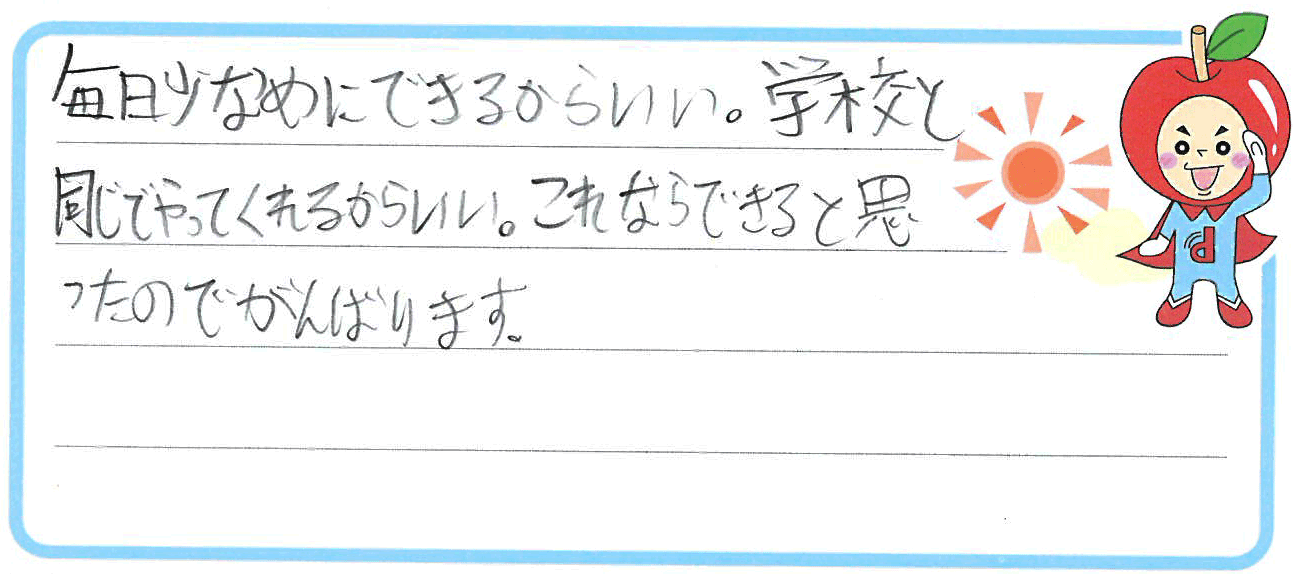 毎日少なめにできるからいい。学校と
同じでやってくれるからいい。これならできると思
ったのでがんばります。